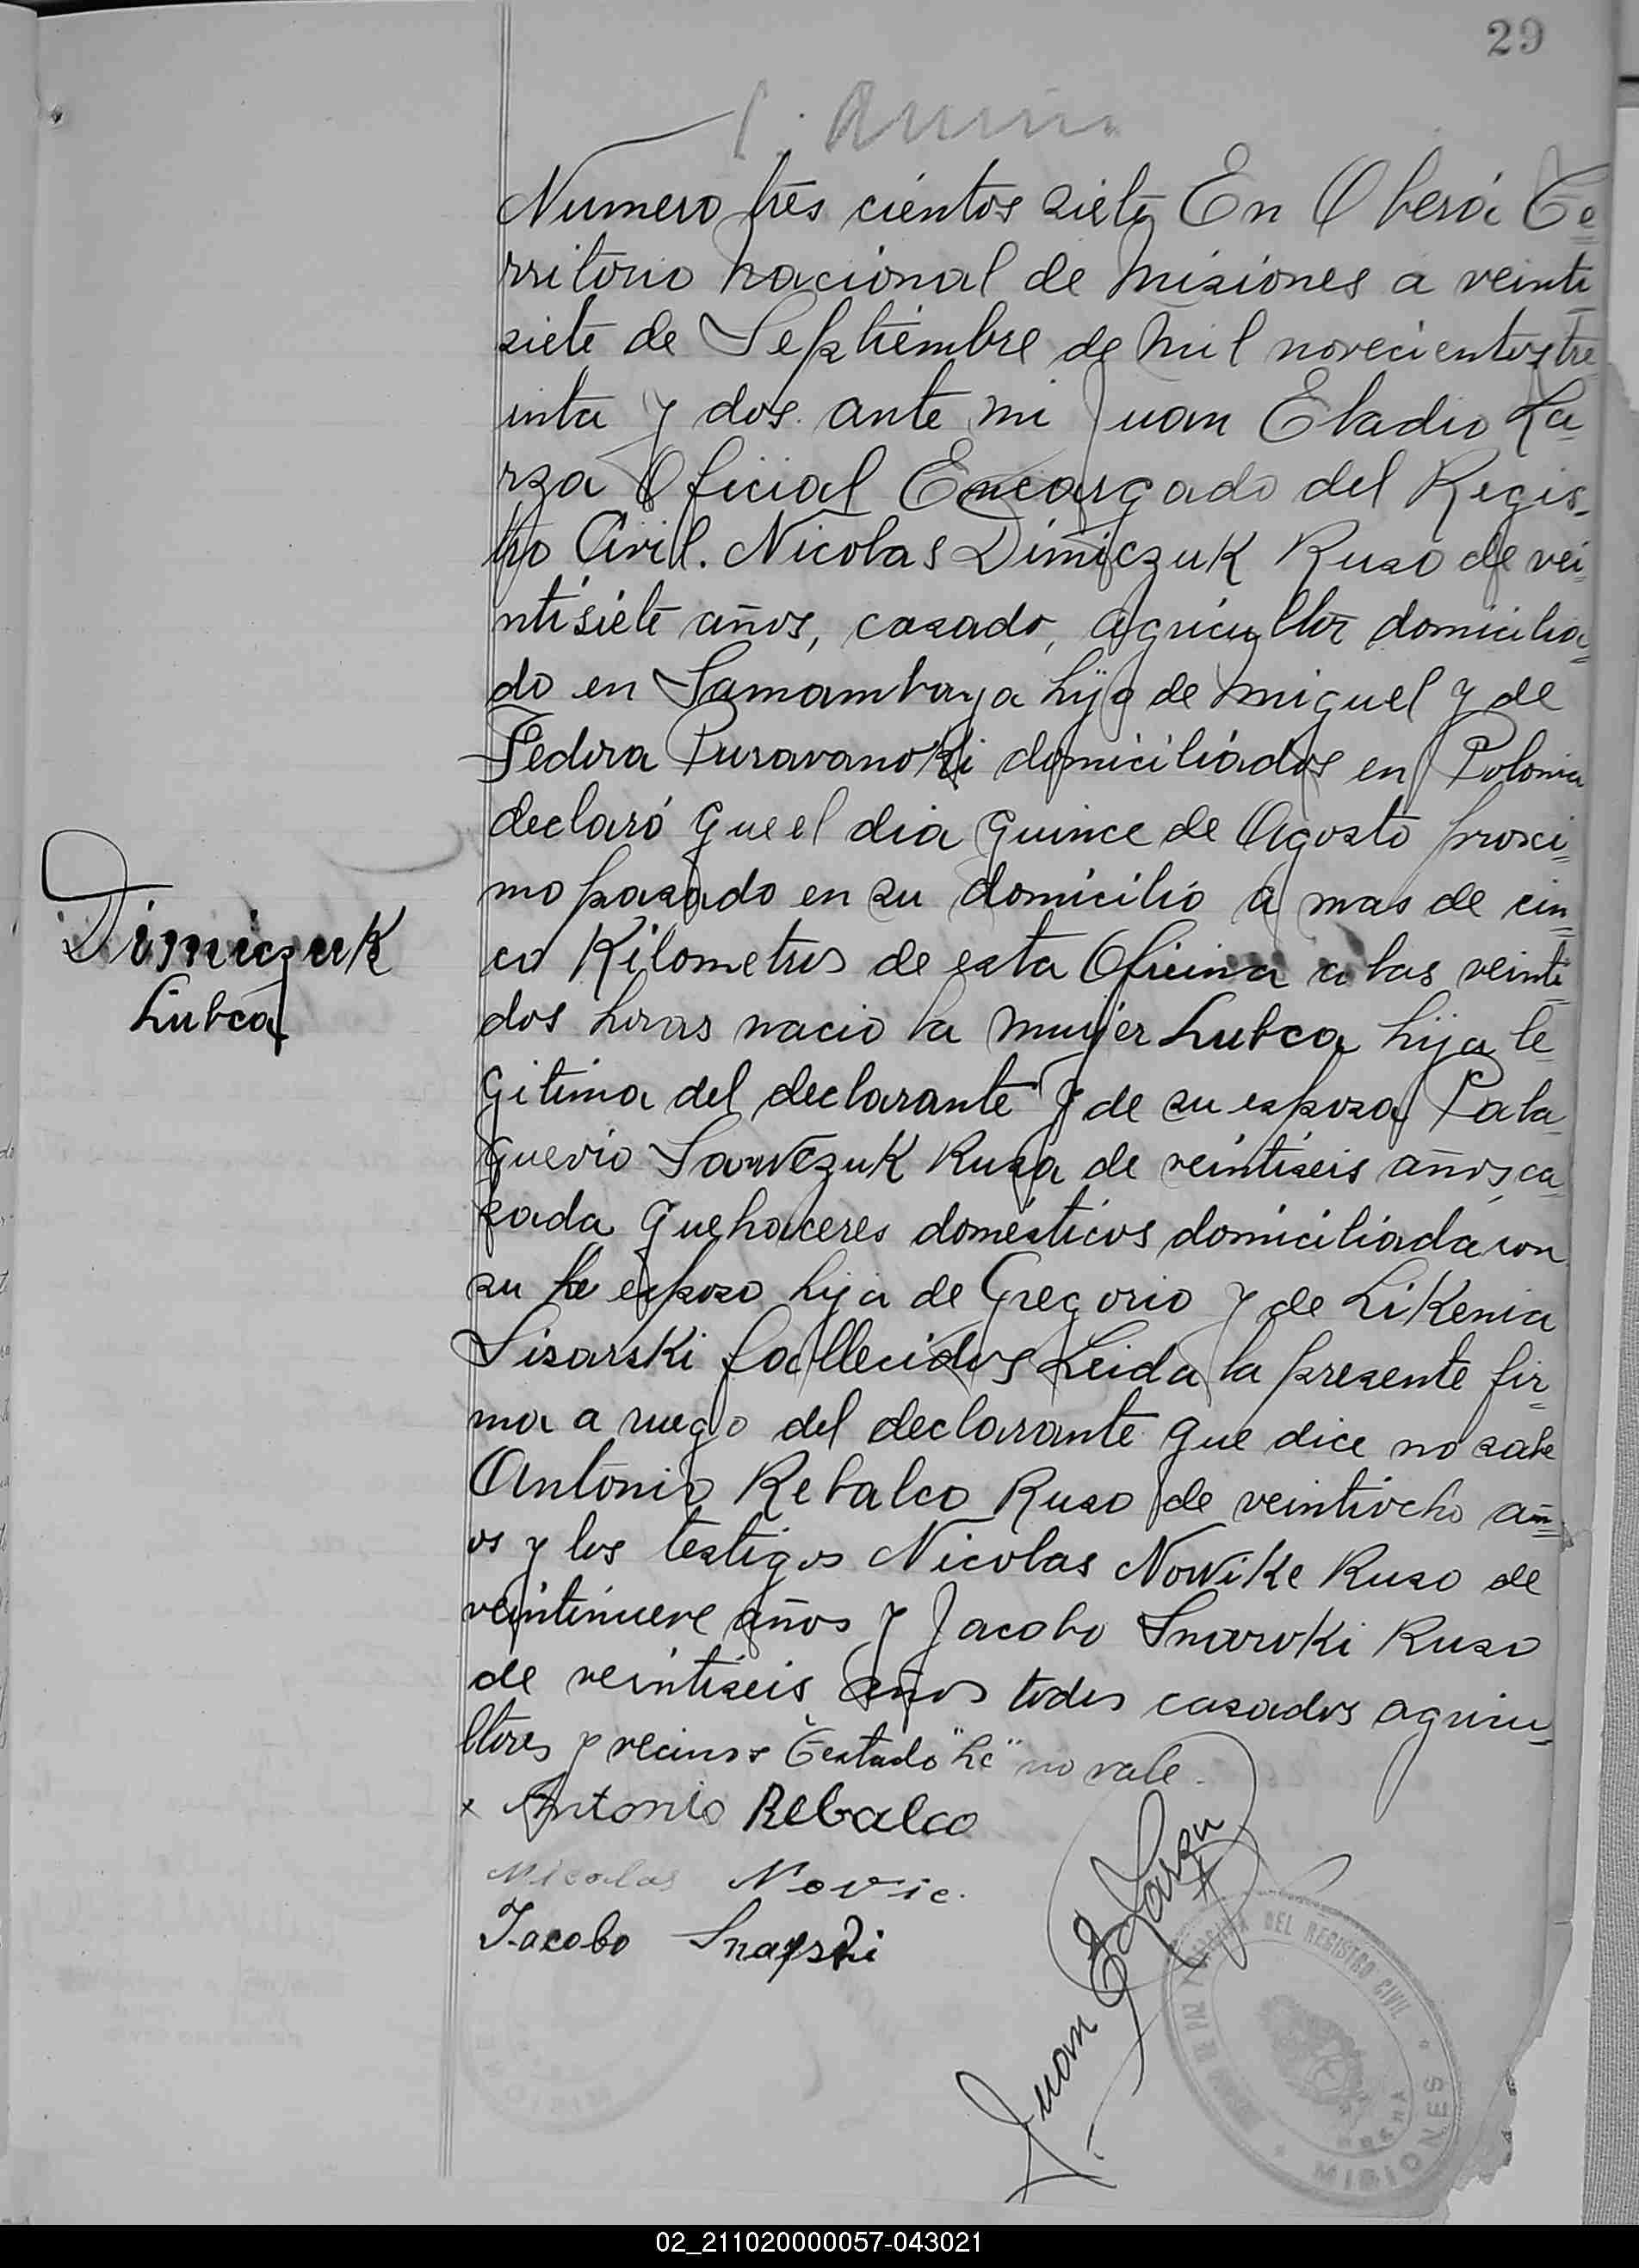 29
Numero tres cientos siete En Oberá Te
rritorio nacional de Misiones a veinti
siete de Septiembre de mil novecientos tre
inta y dos. ante mi Juan Eladio La
rza Oficial Encargado del Regis
tro Civil. Nicolas Dimiczuk Ruso de vei
ntisiete años, casado, agricultor domicilia
do en Samambaya hijo de Miguel y de
Fedora Puravanoski domiciliados en Polonia
declaró que el dia quince de Agosto proxi
mo pasado en su domicilio a mas de cin
co Kilometros de esta Oficina a las veinti
dos horas nacio la mujer Lubca hija le
gitima del declarante y de su esposa Pala
guevio Sawezuk Rusa de veintiseis años, ca
sada quehaceres domésticos domiciliada con
su he esposo hija de Gregorio y de Likenia
Sisarski fallecidos Leida la presente fir
ma a ruego del declarante que dice no sabe
Antonio Rebalco Ruso de veintiocho añ
os y los testigos Nicolas Nowike Ruso de
veintinueve años y Jacobo Snarvki Ruso
de veintiseis años todos casados agricu
ltores y vecinos Testado "he" no vale.
x Antonio Rebalco
Nicolas Novic.
Jacobo Snarski
Juan E Larza
Dimiczuk
Lubca
DEL REGISTRO CIVIL
MISIONES
02_211020000057-043021